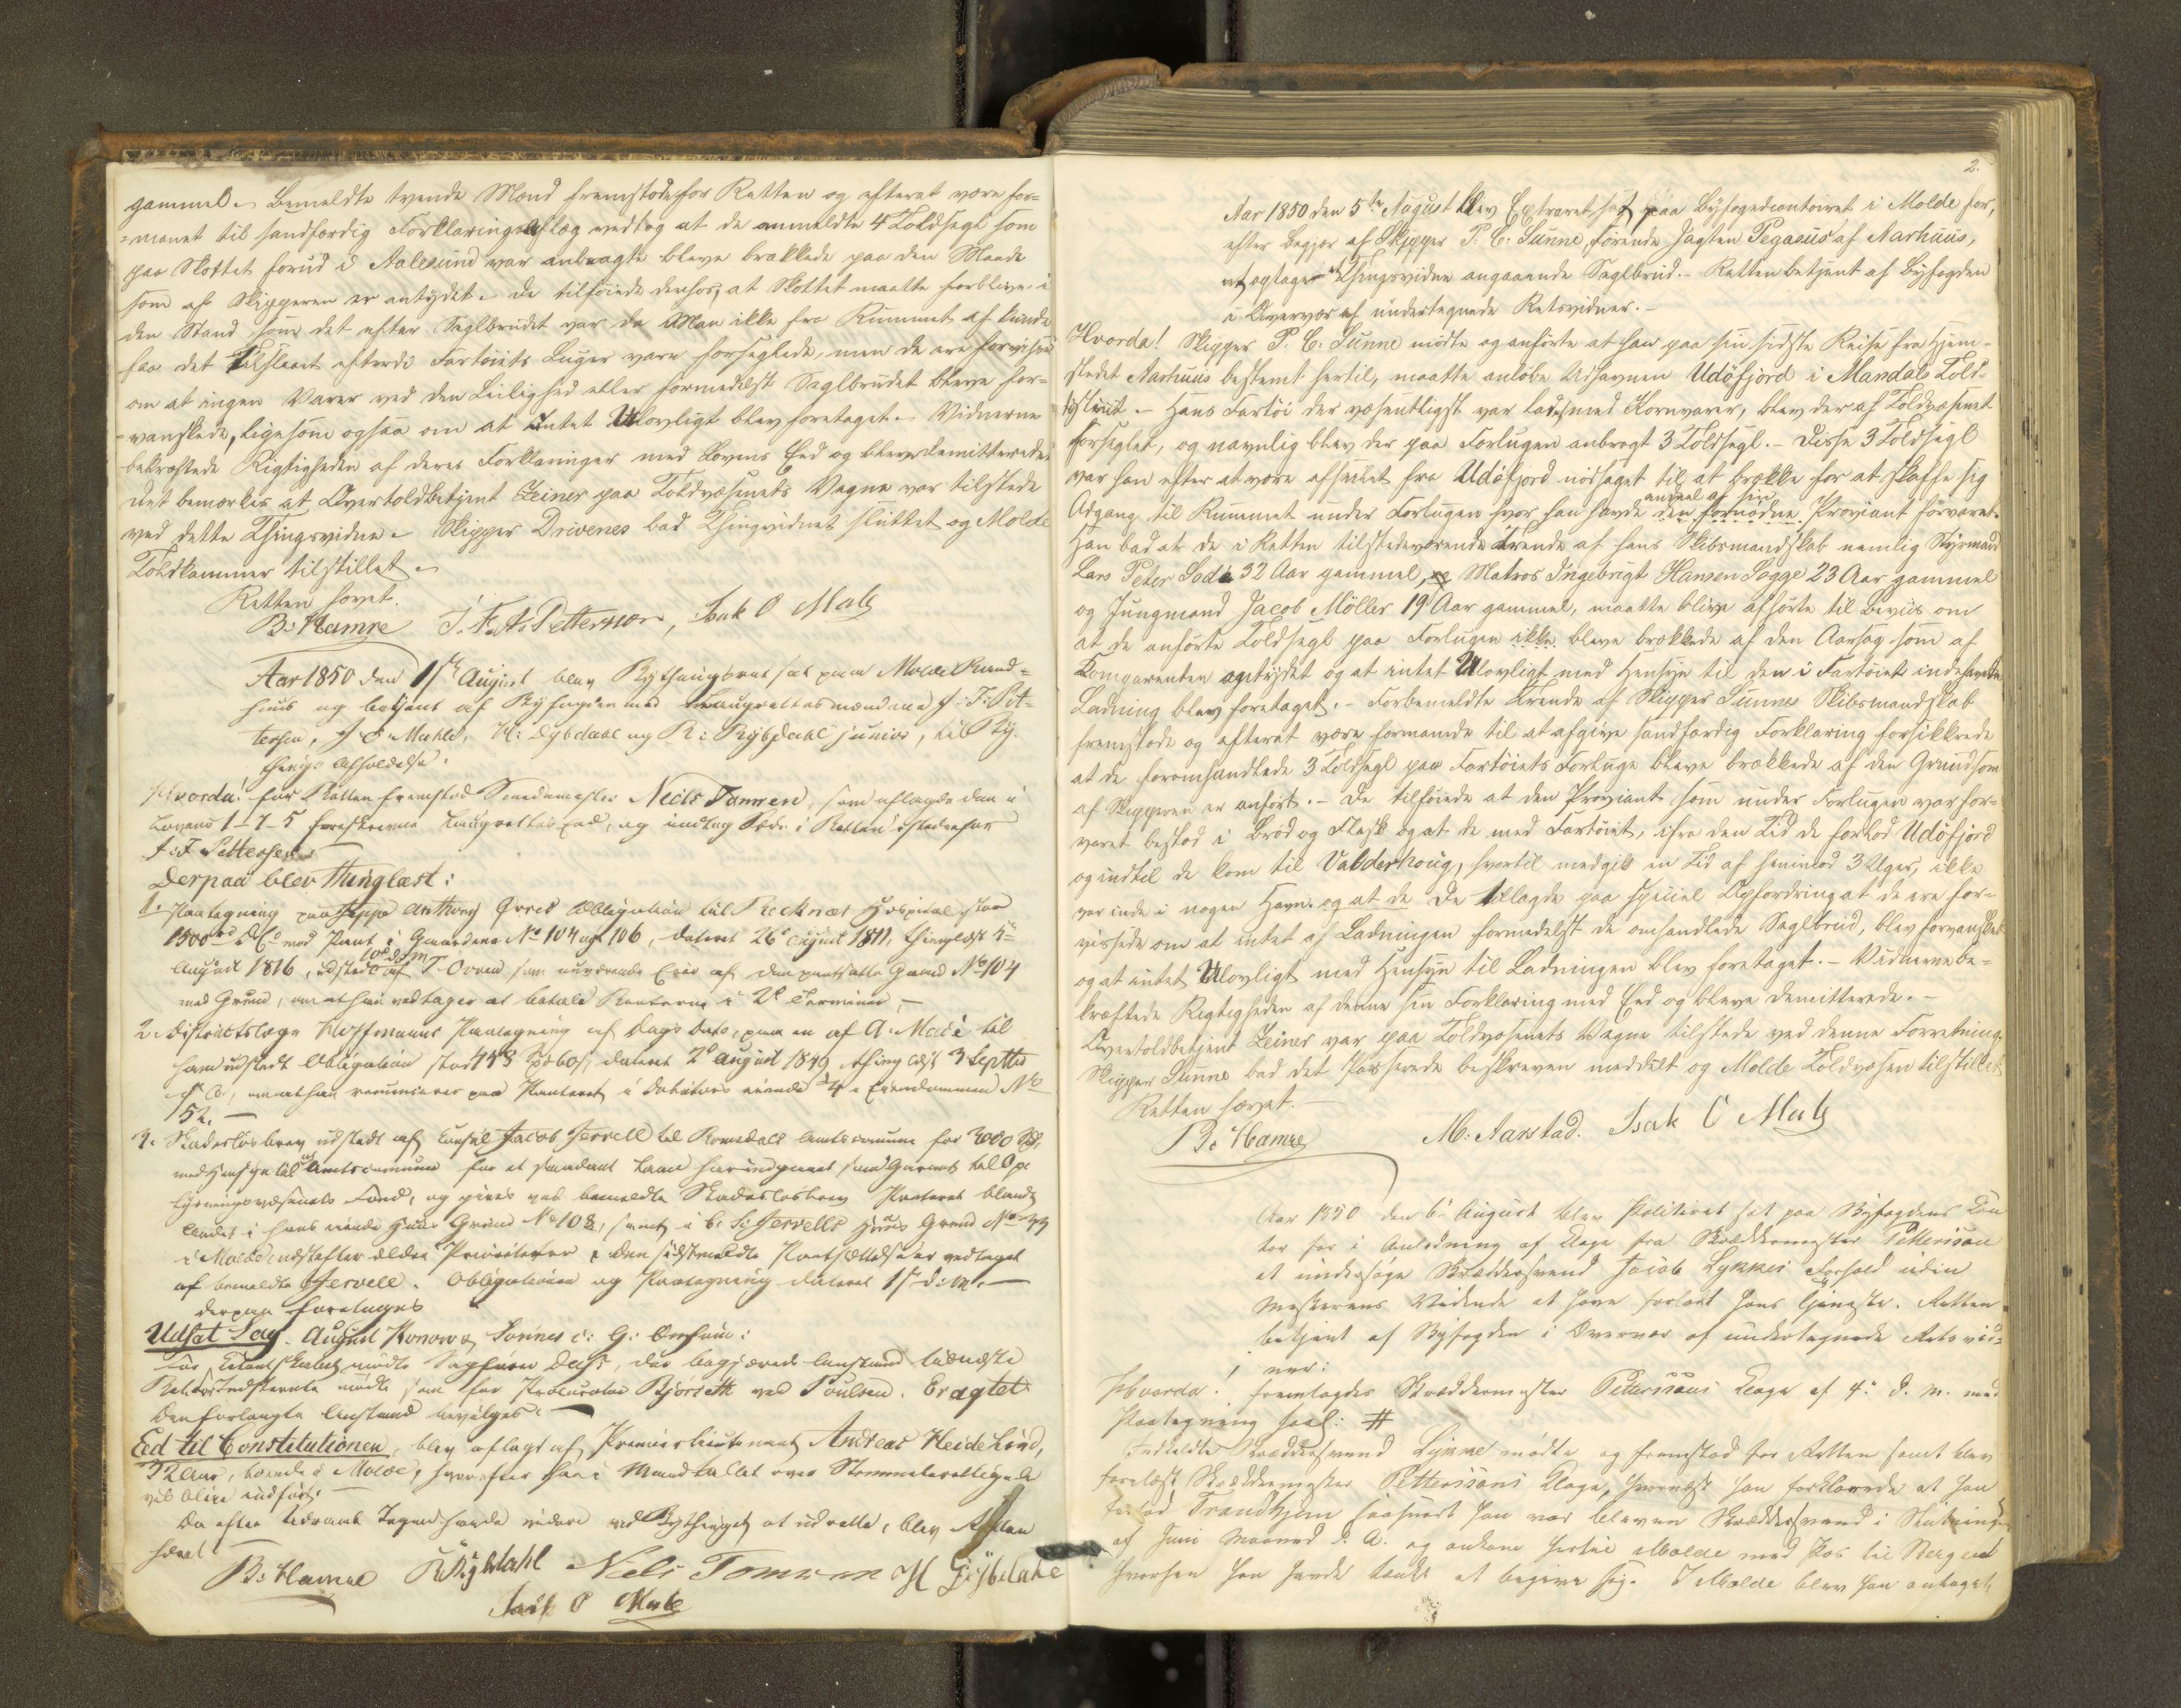 gammel. Bemeldte tvende Mænd fremstode for Retten og efterat være for-
manet til sandfærdig Forklarings Aflæg vedtog at de anmeldte 4 Toldsegl som
paa Skottet forud i Aalesund var anbragte bleve brækkede paa den Maade
som af Skipperen er antydet. De tilføiede derhos, at Skottet maatte forblive i
den Stand som det efter Seglbrudet var da Man ikke fra Rummet af kunde
faae det tilslaaet efterdi Fartøiets Luger vare forseglede, men de ere forvissede
om at ingen Varer ved den Leilighed eller formedelst Seglbrudet bleve for-
vanskede, ligesom ogsaa om at Intet Ulovligt blev foretaget. Vidnerne
bekræftede Rigtigheden af deres Forklaringer med Lovens Eed og bleve demitterede.
Det bemærkes at Overtoldbetjent Zeiner paa Toldvæsenets Vegne var tilstede
ved dette Thingsvidne. Skipper Drivenes bad Thingsvidnet sluttet og Molde
Toldkammer tilstillet.
Retten hævet.
B. Hamre J. F. A. Petterson, Isak O Mals
Aar 1850 den 1ste August blev Bythingsret sat paa Molde Raad-
huus og betjent af Byfogden med Laugrettesmændene J. F. Pet-
tersen, I. O. Mahls, H. Dybdahl og R. Rybdahl junior, til By-
things Afholdelse.
Hvorda! for Retten fremstod Smedemester Neils Tomren, som aflagde den i
Lovens 1-7-5 foreskrevne Laugrettes Eed, og indtog Sæde i Retten istedenfor
J. F. Pettersen
Derpaa blev thinglæst:
1. Paategning paa Jeppe Anthony Obligation til Reknæs Hospital stor
1500 rd D. C. med Pant i Gaardene No 104 og 106, dateret 26 August 1811, thinglæst 5te
August 1816, udstedt af T. Owren som nuværende Eier af den pantsatte Gaard No 104
med Grund, om at han vedtager at betale Renterne i 2de Terminer.
2. Districtslæge Hoffmanns Paategning af Dags Dato, paa en af A. Macé til
ham udstedt Obligation stor 448 Spd 60 s, dateret 2d August 1849, thinglæst 3 Septbr
s. A., om at han renuncierer paa Panteret i Debitors eiende 1/4 i Eiendommen No
152.
3. Skadesløsbrev udstedt af Consul Jacob Jervell til Romsdals Amtscommune for 3000 Spd,
med Hensyn til at Amtscommunen for et saadant Laan har indgaaet som Garant til Op-
lysningsvæsenets Fond, og gives ved bemeldte Skadesløsbrev Panteret blandt
Andet i hans eiende Huus Grund No 108, samt i C. S. Jervells Huus Grund No 79
i Molde næstefter ældre Prioriteter. Den sidstmeldte Pantsættelse er vedtaget
af bemeldte Jervell. Obligationen og Paategning dateret 1ste d. M.
derpaa foretoges
Udsat Sag. August Konow
mødte Sagfører Dahl, der begjærede Anstand til næste
mødte som for Procurator Bjørseth ved Poulsen. Eragtet
Den forlangte Anstand bevilges.
Eed til Constitutionen, blev aflagt af Premierlieutenant Andreas Heide Lind,
32 Aar, boende i Molde, hvorefter han i Mandtallet over Stemmeberettigede
vil blive indført.
Da efter Ingen havde videre ved Bythinget at udrette, blev Retten
hævet.
B. Hamre R Rybdahl Niels Tomren H Dybdahl
Isak O Mals
2.
Aar 1850 den 5te August blev Extraret sat paa Byfogedcontoiret i Molde for,
efter Begjær af Skipper P. C. Sunne, førende Jagten Pegasus af Aarhuus,
at optage et Thingsvidne angaaende Seglbrud. Retten betjent af Byfogden
i Overvær af undertegnede Retsvidner.
Hvorda! Skipper P. C. Sunne mødte og anførte at han paa sin sidste Reise fra Hjem-
stedet Aarhuus bestemt hertil, maatte anløbe Udhavnen Udöfjord i Mandals Told-
district. Hans Fartøi der væsentligst var ladet med Kornvarer, blev der af Toldvæsenet
forseglet, og navnlig blev der paa Forlugen anbragt 3 Toldsegl. Disse 3 Toldsegl
var han efter at være afseilet fra Udöfjord nødsaget til at brække for at skaffe sig
Adgang til Rummet under Forlugen hvor han havde den fornødne en Deel af sin Proviant forvaret.
Han bad at de i Retten tilstedeværende Trende af hans Skibsmandskab nemlig Styrmand
Lars Peter Sode 32 Aar gammel, Matros Ingebrigt Hansen Sogge 23 Aar gammel
og Jungmand Jacob Möller 19 Aar gammel, maatte blive afhørte til Beviis om
at de anførte Toldsegl paa Forlugen ikke bleve brækkede af den Aarsag som af
Comparenten antydet og at intet Ulovligt med Hensyn til den i Fartøiet indehavende
Ladning blev foretaget. Forbemeldte Trende af Skipper Sunnes Skibsmandskab
fremstode og efterat være formanede til at afgive sandfærdig Forklaring forsikkrede
at de foromhandlede 3 Toldsegl paa Fartøiets Forluge bleve brækkede af den Grund som
af Skipperen er anført. De tilføiede at den Proviant som under Forlugen var for-
varet bestod i Brød og Flesk og at de med Fartøiet, ifra den Tid de forlod Udöfjord
og indtil de kom til Valderhoug, hvortil medgik en Tid af henimod 3 Uger, ikke
var inde i nogen Havn. og at de De tillagde paa speciel Opfordring at de ere for-
vissede om at intet af Ladningen formedelst de omhandlede Seglbrud, blev forvansket
og at intet Ulovligt med Hensyn til Ladningen blev foretaget. Vidnerne be-
kræftede Rigtigheden af denne sin Forklaring med Eed og bleve demitterede.
Overtoldbetjent Zeiner var paa Toldvæsenets Vegne tilstede ved denne Forretning.
Skipper Sunne bad det Passerede beskreven meddelt og Molde Toldvæsen tilstillet
Retten hævet.
B. Hamre M. Aarstad. Isak O Mals
Aar 1850 den 6. August blev Politiret sat paa Byfogdens Con-
tor for i Anledning af Klage fra Skræddermester Petterssen
at undersøge Skræddersvend Jacob Lykkes Forhold uden
Mesterens Vidende at have forladt hans Tjeneste. Retten
betjent af Byfogden i Overvær af undertegnede Retsvid-
ner:
Hvorda! fremlagdes Skræddermester Peterssens Klage af 4. d. M. med
Paategning saal: #
Indkaldte Skræddersvend Lykke mødte og fremstod for Retten samt blev
forelæst Skræddermester Petterssens Klage, hvorefter han forklarede at han
forlod Trondhjem saasnart han var bleven Skræddersvend i Slutningen
af Juni Maaned d. A. og ankom hertil Molde med Pas til Bergen
hvorhen han havde tænkt at begive sig. I Molde blev han antaget